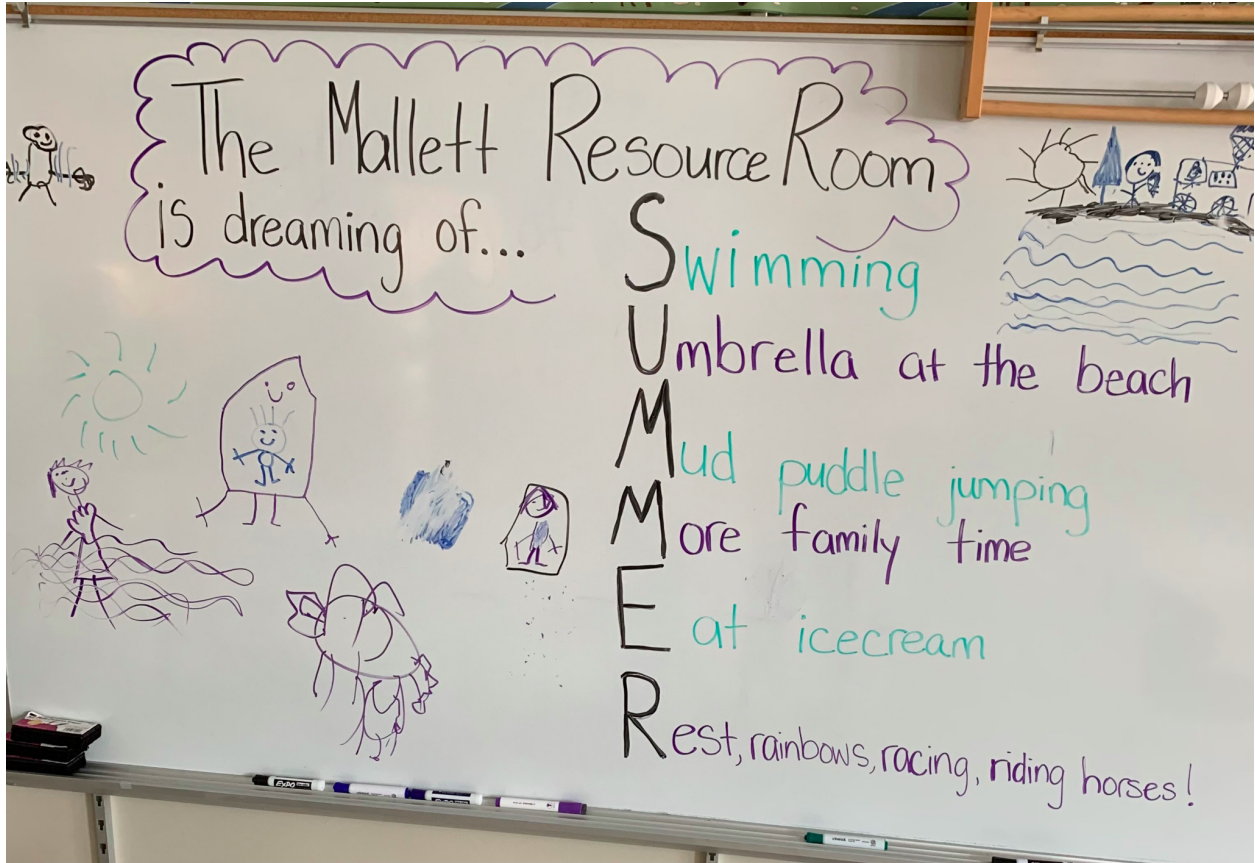 The Mallett Resource Room
is dreaming of...
Swimming
Umbrella at the beach
Mud puddle jumping
More family time
Eat icecream
Rest, rainbows, racing, riding horses!
EXPO